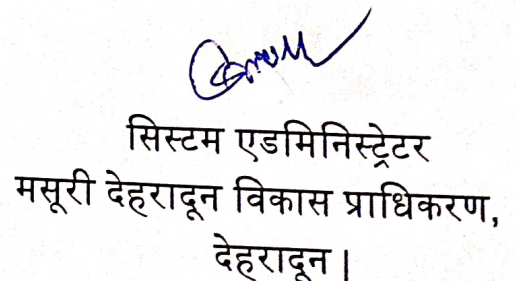 सिस्टम एडमिनिस्ट्रेटर
मसूरी देहरादून विकास प्राधिकरण,
देहरादून।